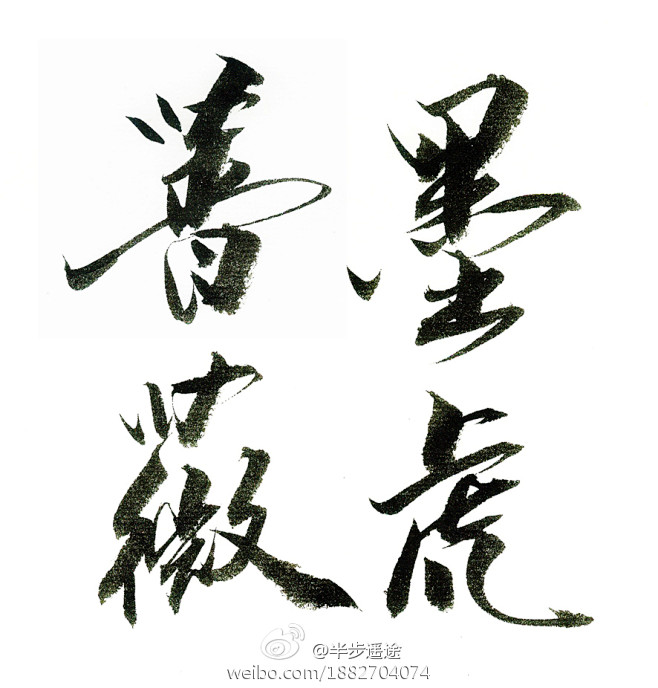 墨虎
蔷薇
@半步遥途
weibo.com/1882704074